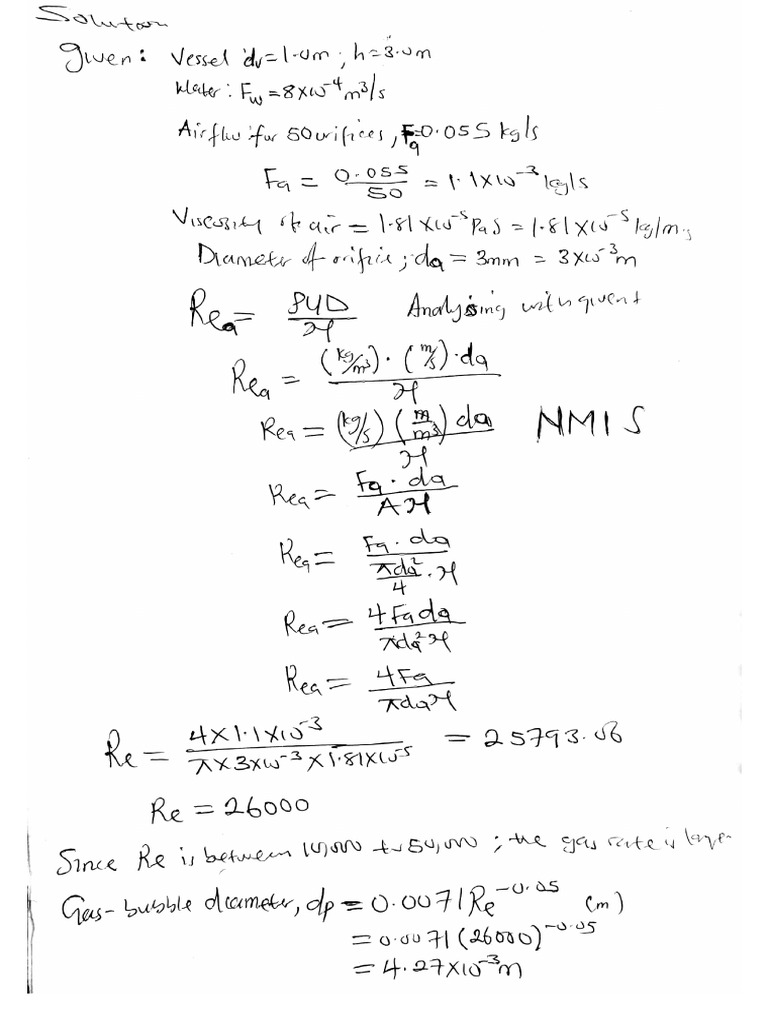 Solution
Given: Vessel dv=1.0m; h=3.0m
Water: Fw=8x10⁻⁴m³/s
Airflow for 50 orifices, Fa=0.055kg/s
Fa = 0.055/50 = 1.1x10⁻³kg/s
Viscosity of air = 1.81x10⁻⁵Pas = 1.81x10⁻⁵kg/m.s
Diameter of orifice; da = 3mm = 3x10⁻³m
Rea = ρUD/μ Analysing with given t
Rea = (kg/m³)·(m/s)·da/μ
Rea = (kg/s)(m/m³)da/μ NMIS
Rea = Fa·da/Aμ
Rea = Fa·da/(πda²/4·μ)
Rea = 4Fada/πda²μ
Rea = 4Fa/πdaμ
Re = 4x1.1x10⁻³/πx3x10⁻³x1.81x10⁻⁵ = 25793.06
Re = 26000
Since Re is between 10,000 to 50,000; the gas rate is large
Gas-bubble diameter, dp = 0.0071Re⁻⁰·⁰⁵ (m)
= 0.0071(26000)⁻⁰·⁰⁵
= 4.27x10⁻³m